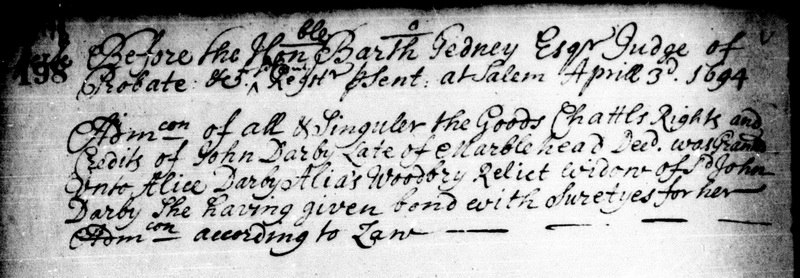 Before the Honble Bartho Gedney Esqr Judge of
198 Probate &c Registr psent: at Salem Aprill 3d. 1694
Admcon of all & Singuler the Goods Chattls Rights and
Credits of John Darby Late of Marblehead Decd. was Granted
Unto Alice Darby Alias Woodbry Relict widow of sd John
Darby She having given bond with Suretyes for her
Admcon according to Law